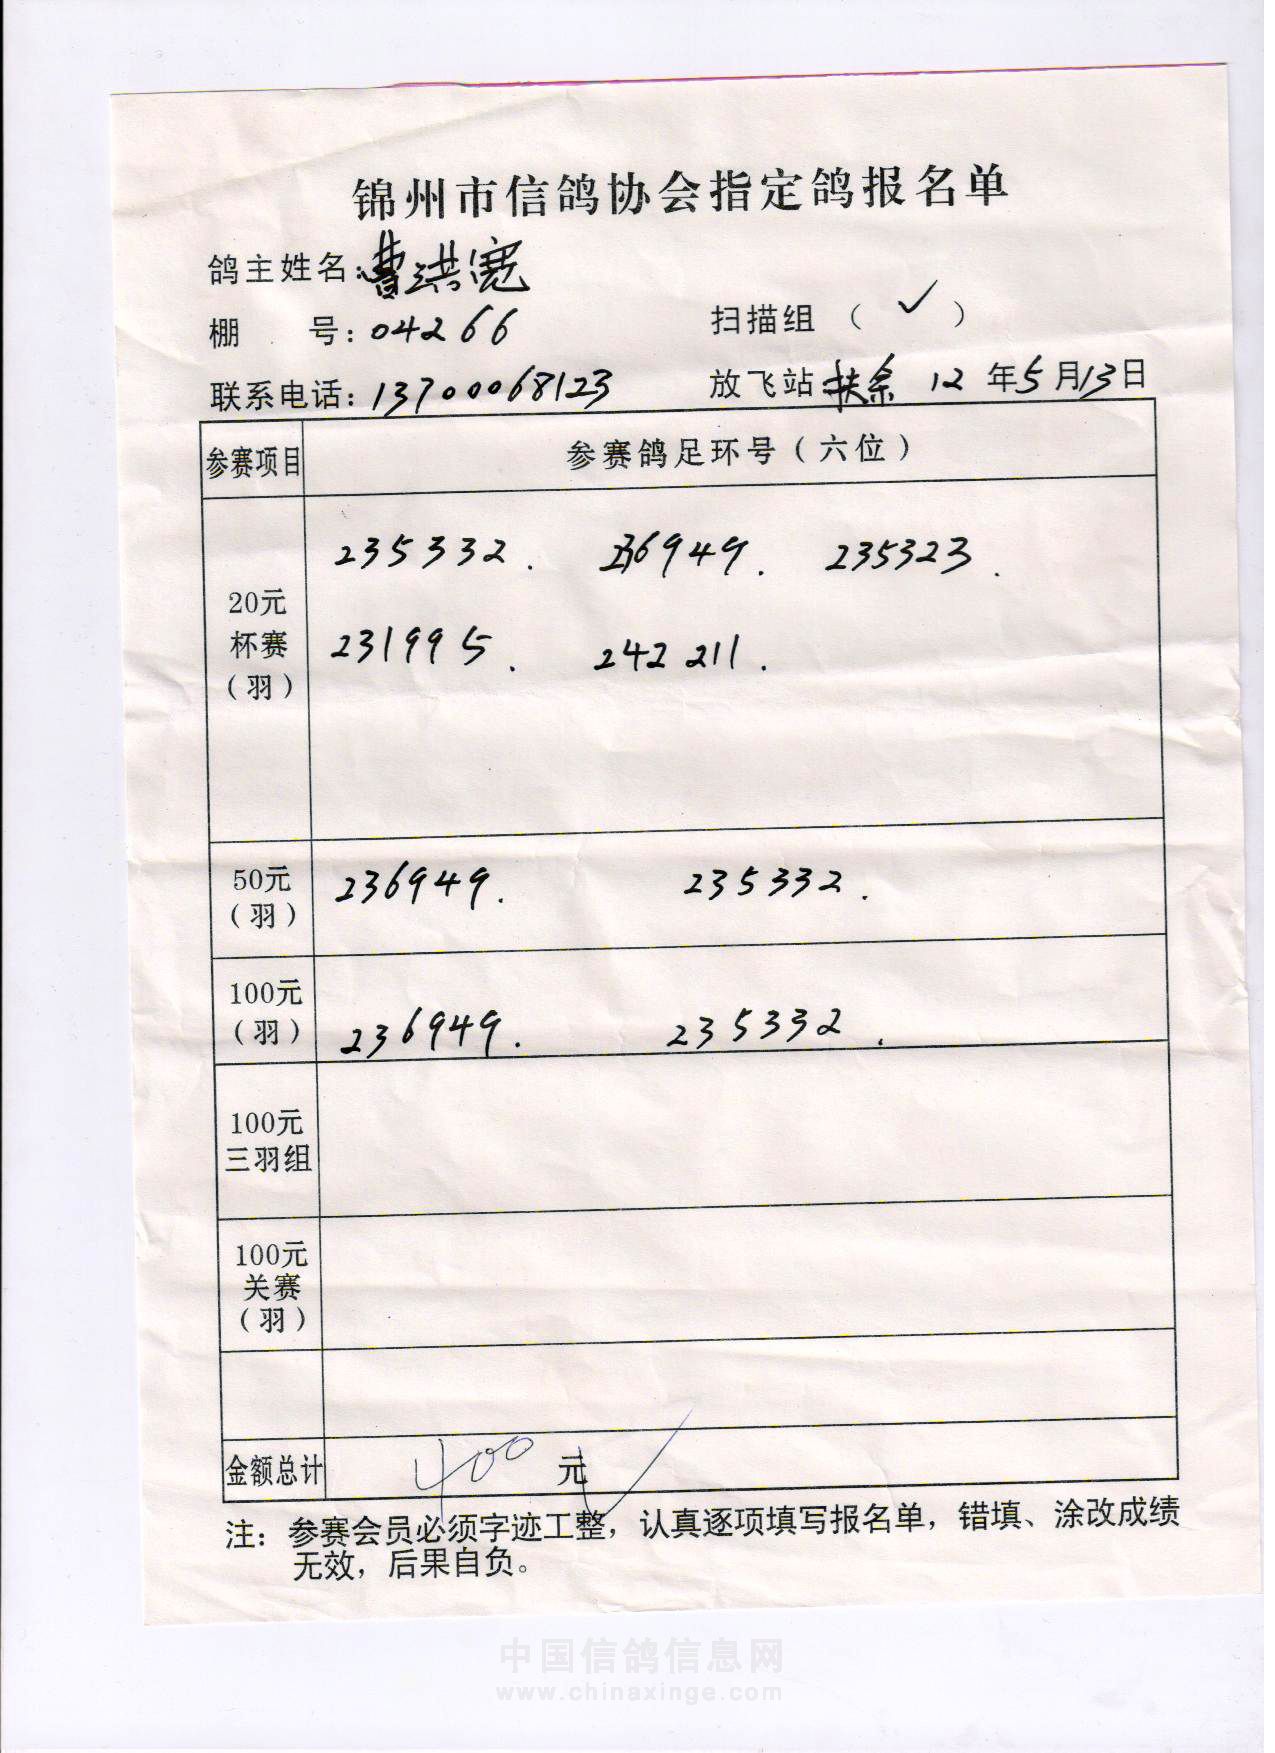 锦州市信鸽协会指定鸽报名单
鸽主姓名：曹洪宽
棚 号：04266 扫描组（ ✓ ）
联系电话：13700068123 放飞站 扶余 12 年5月13日
参赛项目 参赛鸽足环号（六位）
20元
杯赛
（羽）
235332. 236949. 235323.
231995. 242211.
50元
（羽）
236949. 235332.
100元
（羽）
236949. 235332.
100元
三羽组
100元
关赛
（羽）
金额总计 400 元
注：参赛会员必须字迹工整，认真逐项填写报名单，错填、涂改成绩
无效，后果自负。
中国信鸽信息网
www.chinaxinge.com